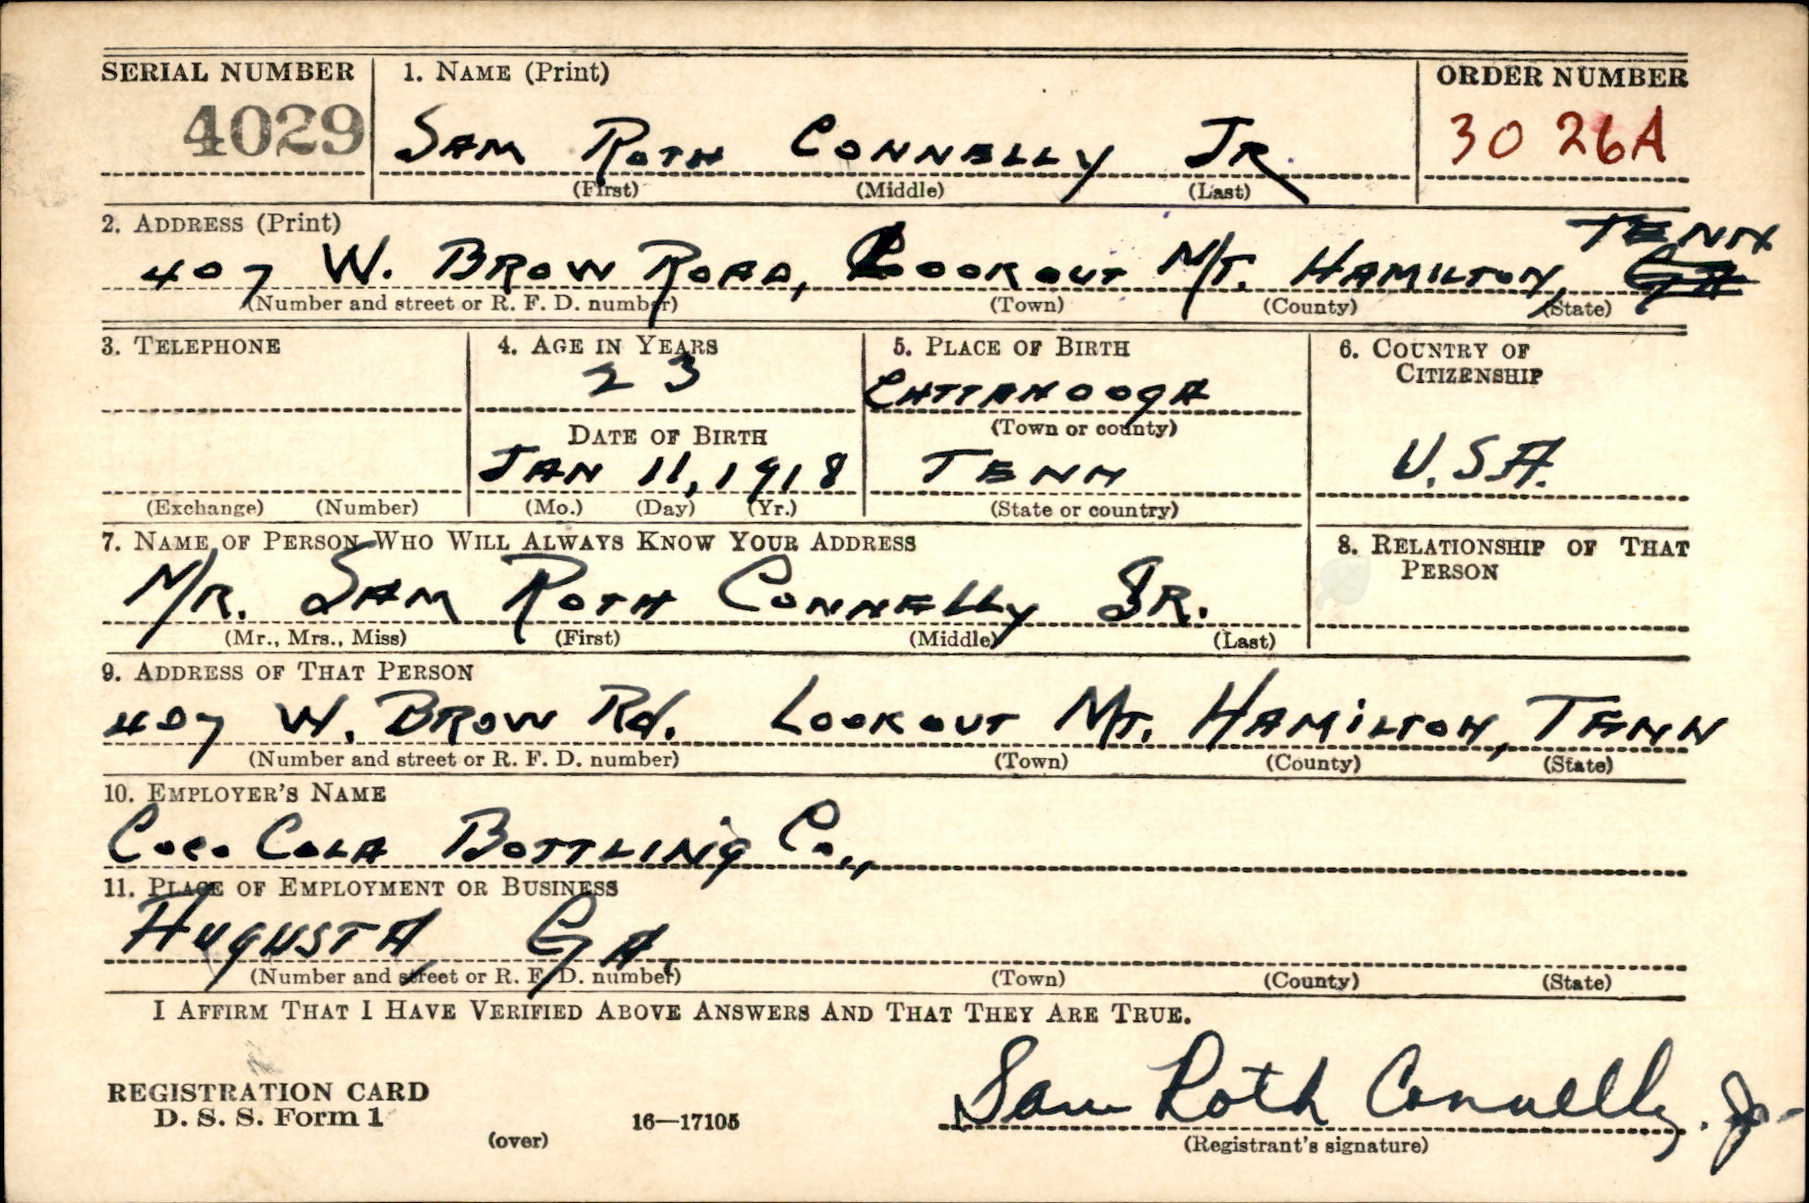 SERIAL NUMBER 1. NAME (Print) ORDER NUMBER
4029 SAM ROTH CONNELLY JR. 3026A
(First) (Middle) (Last)
2. ADDRESS (Print)
TENN
407 W. BROW ROAD, LOOKOUT MT. HAMILTON, GA
(Number and street or R. F. D. number) (Town) (County) (State)
3. TELEPHONE 4. AGE IN YEARS 5. PLACE OF BIRTH 6. COUNTRY OF CITIZENSHIP
23 CHTTANOOgA
(Town or county)
DATE OF BIRTH
JAN 11, 1918 TENN U.S.A.
(Exchange) (Number) (Mo.) (Day) (Yr.) (State or country)
7. NAME OF PERSON WHO WILL ALWAYS KNOW YOUR ADDRESS 8. RELATIONSHIP OF THAT PERSON
MR. SAM ROTH CONNELLY SR.
(Mr., Mrs., Miss) (First) (Middle) (Last)
9. ADDRESS OF THAT PERSON
407 W. BROW Rd. LOOKOUT MT. HAMILTON, TENN
(Number and street or R. F. D. number) (Town) (County) (State)
10. EMPLOYER'S NAME
COCO COLA BOTTLING CO.,
11. PLACE OF EMPLOYMENT OR BUSINESS
AUGUSTA GA.
(Number and street or R. F. D. number) (Town) (County) (State)
I AFFIRM THAT I HAVE VERIFIED ABOVE ANSWERS AND THAT THEY ARE TRUE.
Sam Roth Connelly. Jr.
REGISTRATION CARD
D. S. S. Form 1 16—17105
(over) (Registrant's signature)